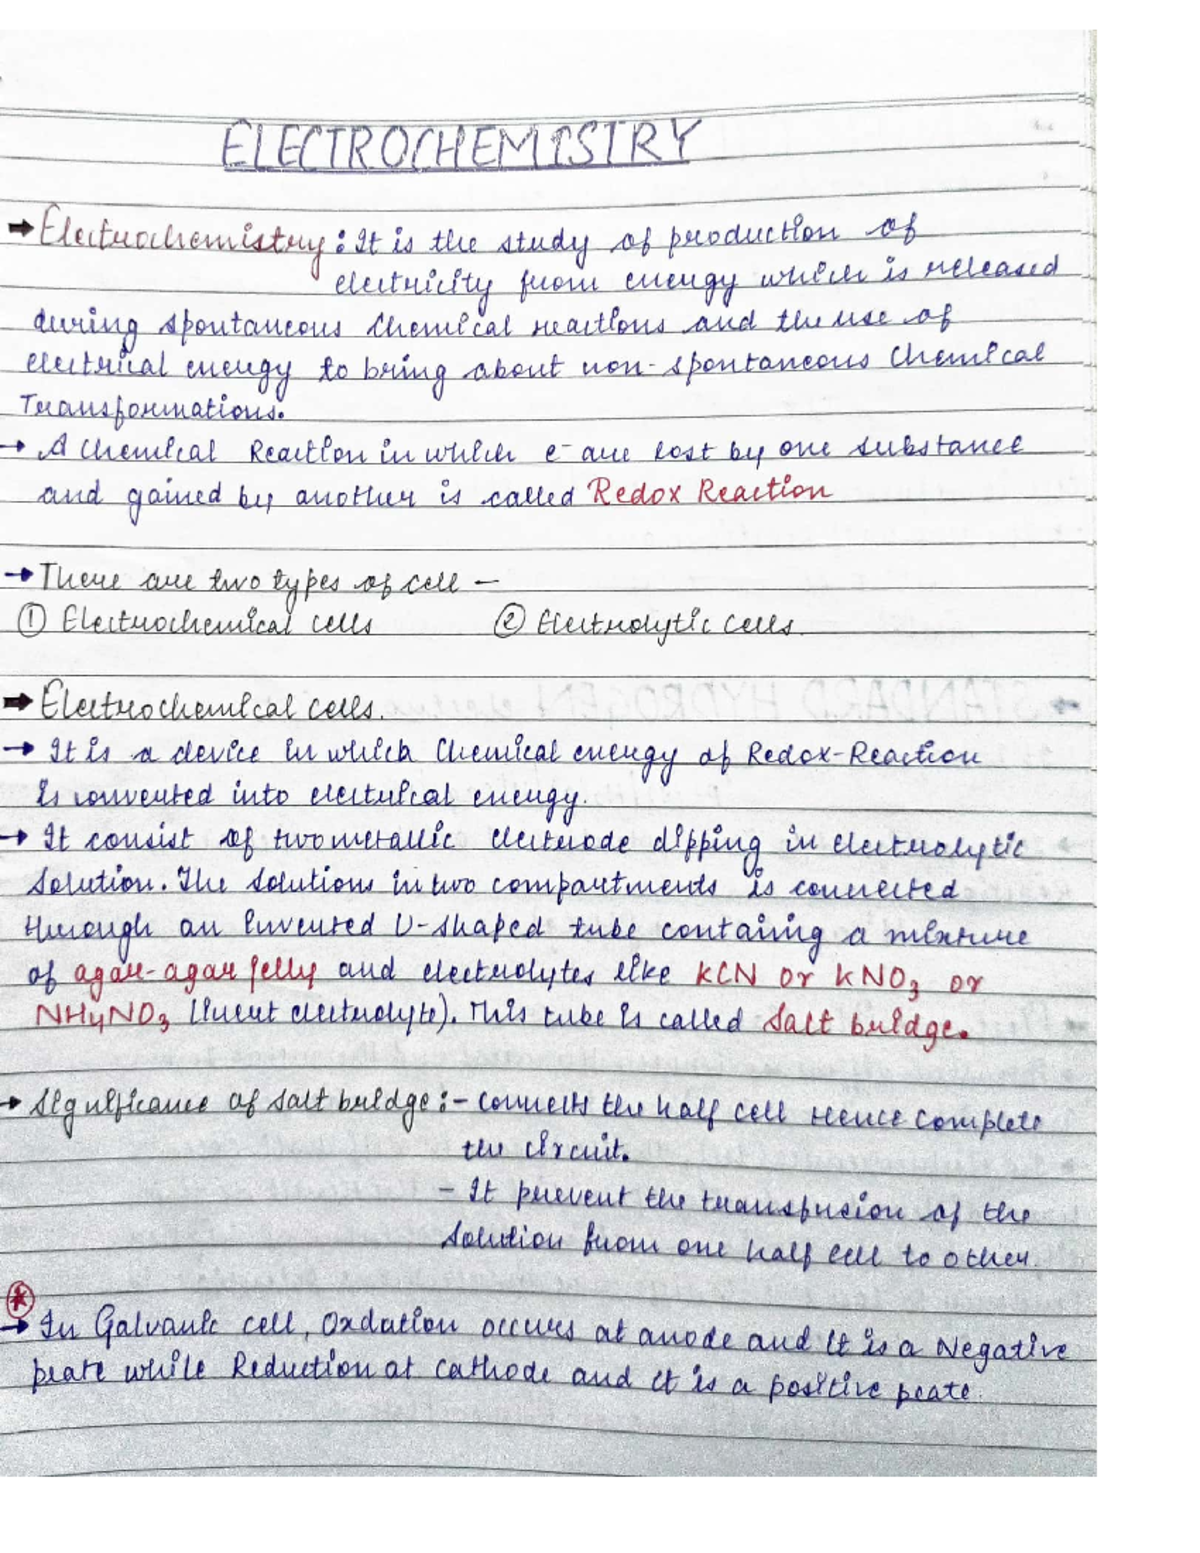 ELECTROCHEMISTRY
→ Electrochemistry : It is the study of production of
electricity from energy which is released
during spontaneous chemical reactions and the use of
electrical energy to bring about non-spontaneous Chemical
Transformations.
→ A Chemical Reaction in which e⁻ are lost by one substance
and gained by another is called Redox Reaction
→ There are two types of cell –
① Electrochemical cells ② Electrolytic cells.
→ Electrochemical cells.
→ It is a device in which Chemical energy of Redox-Reaction
is converted into electrical energy.
→ It consist of two metallic electrode dipping in electrolytic
solution. The solutions in two compartments is connected
through an inverted U-shaped tube containg a mixture
of agar-agar jelly and electrolytes like KCN or KNO₃ or
NH₄NO₃ (Inert electrolyte). This tube is called Salt bridge.
→ Significance of salt bridge :- connects the half cell Hence complete
the circuit.
- It prevent the transfusion of the
solution from one half cell to other.
*
→ In Galvanic cell, Oxdation occurs at anode and it is a Negative
plate while Reduction at cathode and it is a positive plate.
STANDARD HYDROGEN